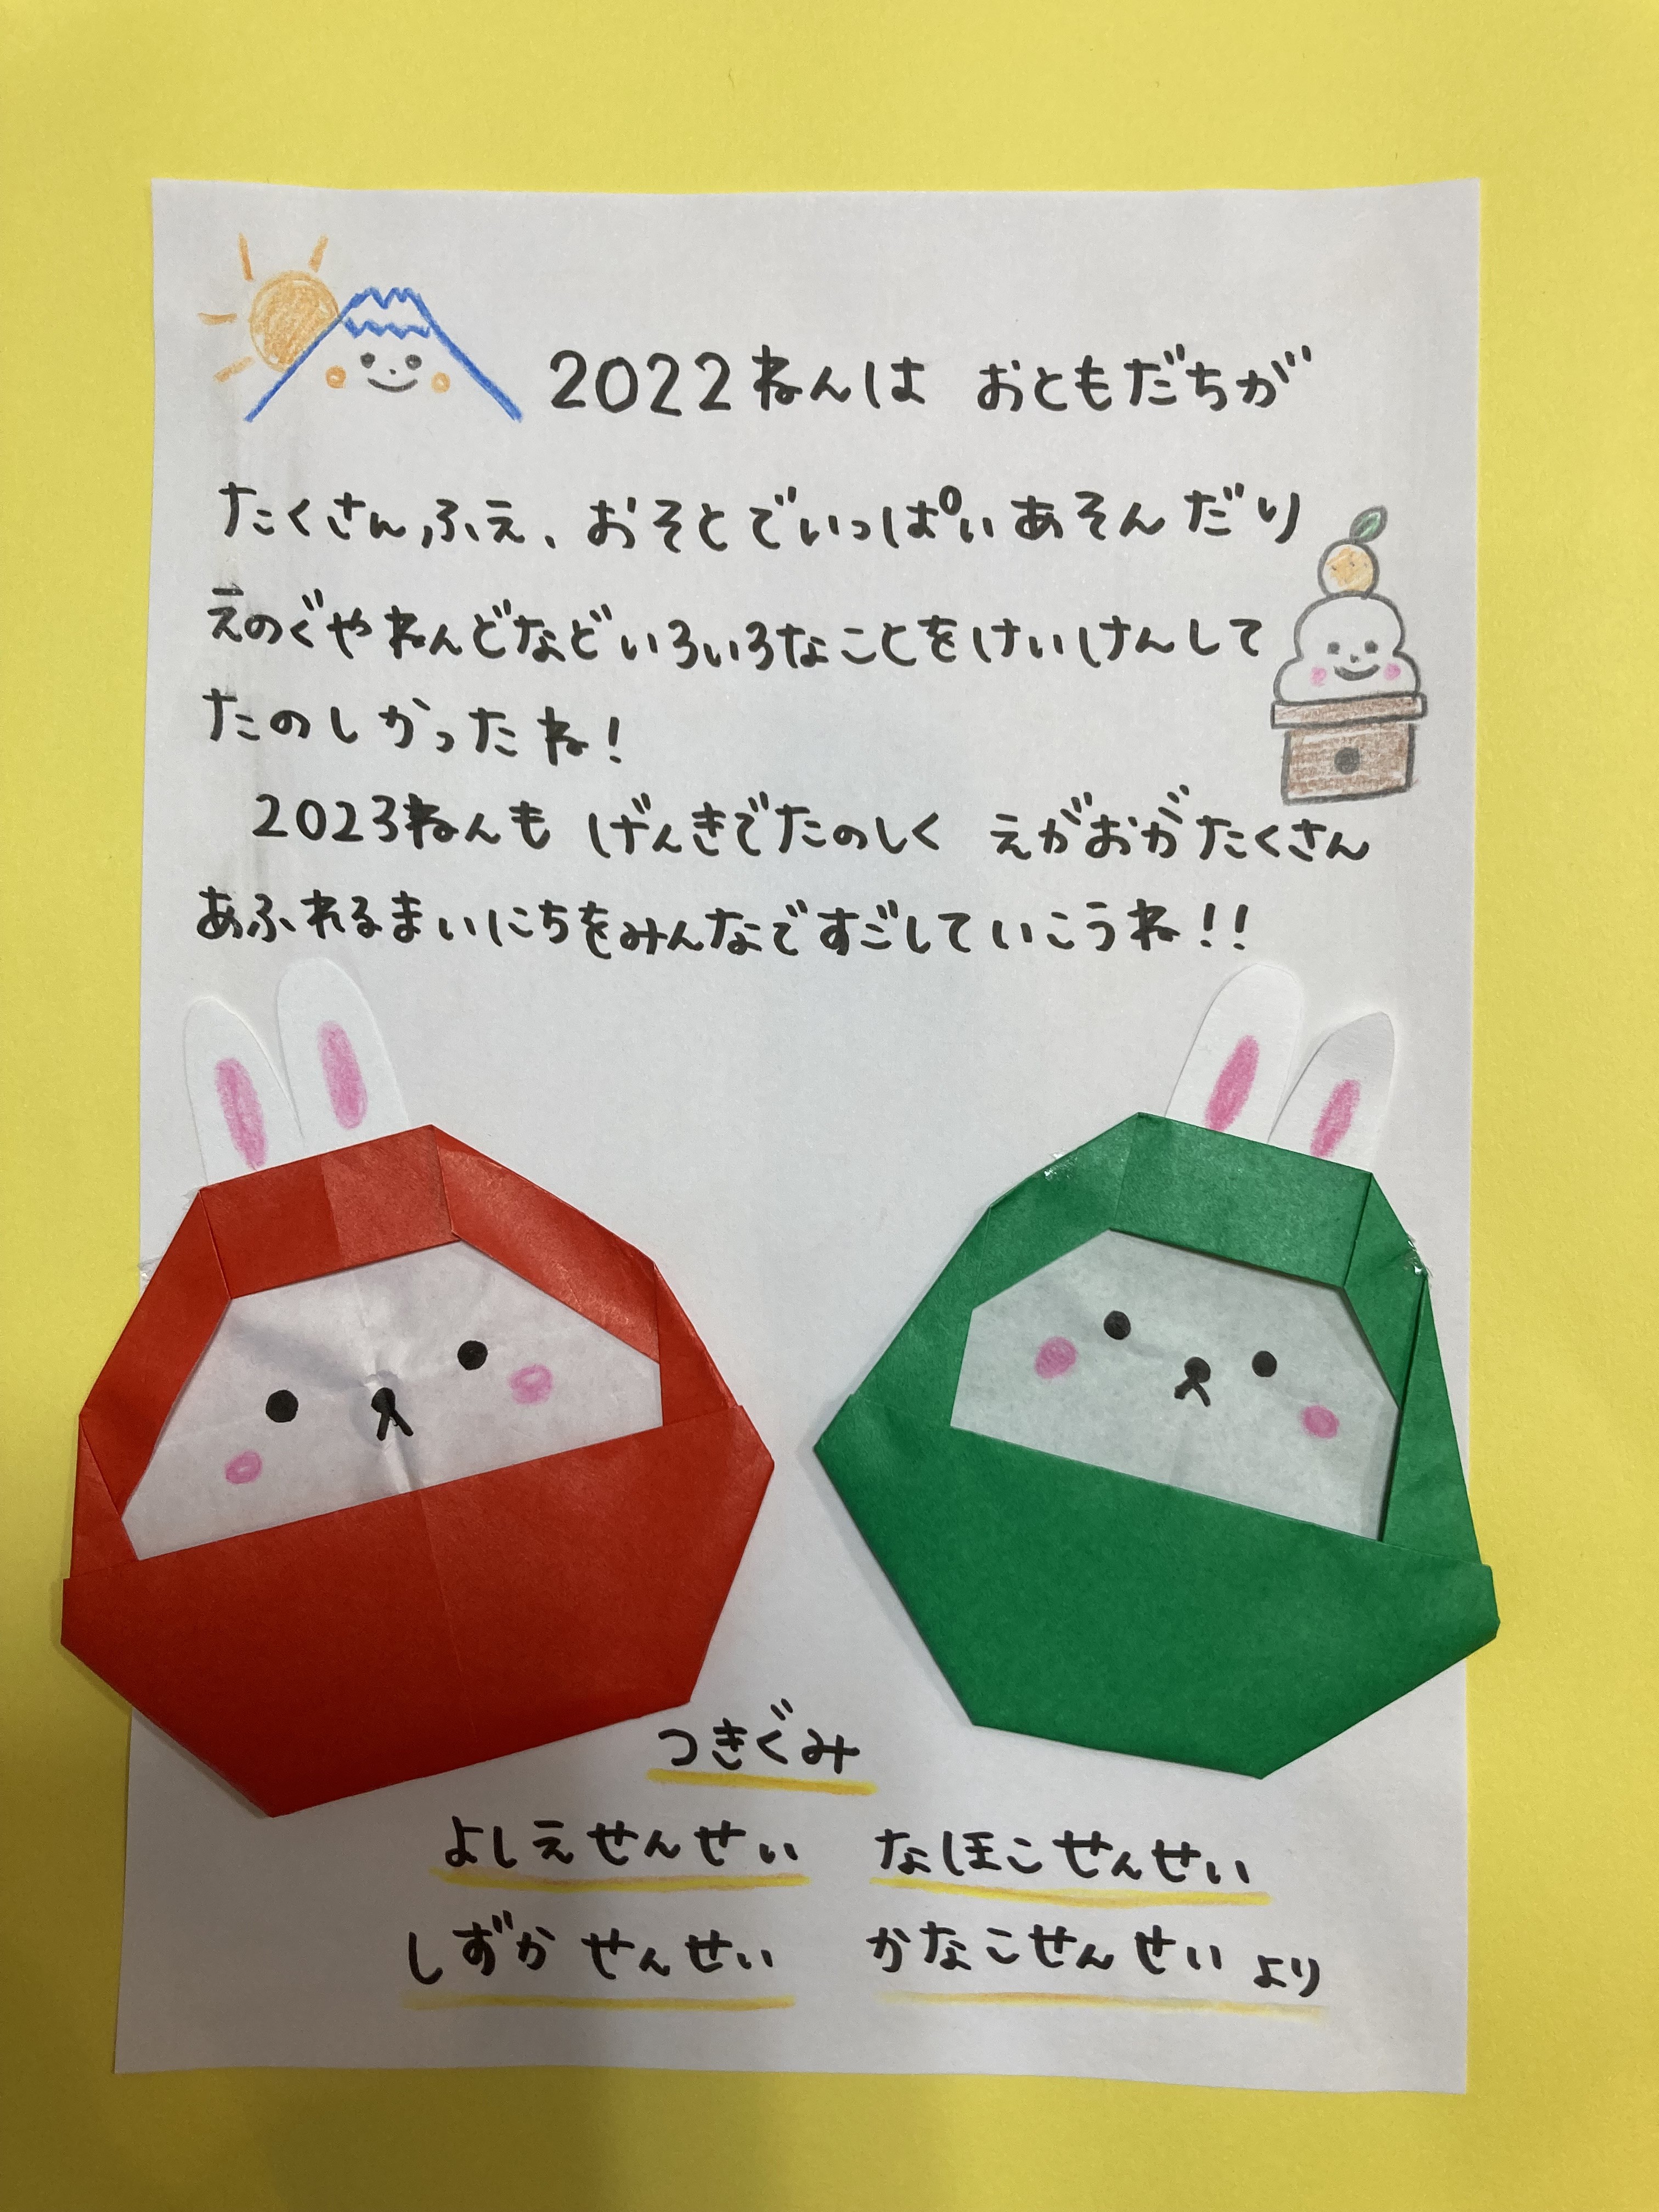 2022ねんは おともだちが
たくさんふえ、おそとでいっぱいあそんだり
えのぐやねんどなどいろいろなことをけいけんして
たのしかったね!
2023ねんも げんきでたのしく えがおがたくさん
あふれるまいにちをみんなですごしていこうね!!
つきぐみ
よしえせんせい なほこせんせい
しずかせんせい かなこせんせいより